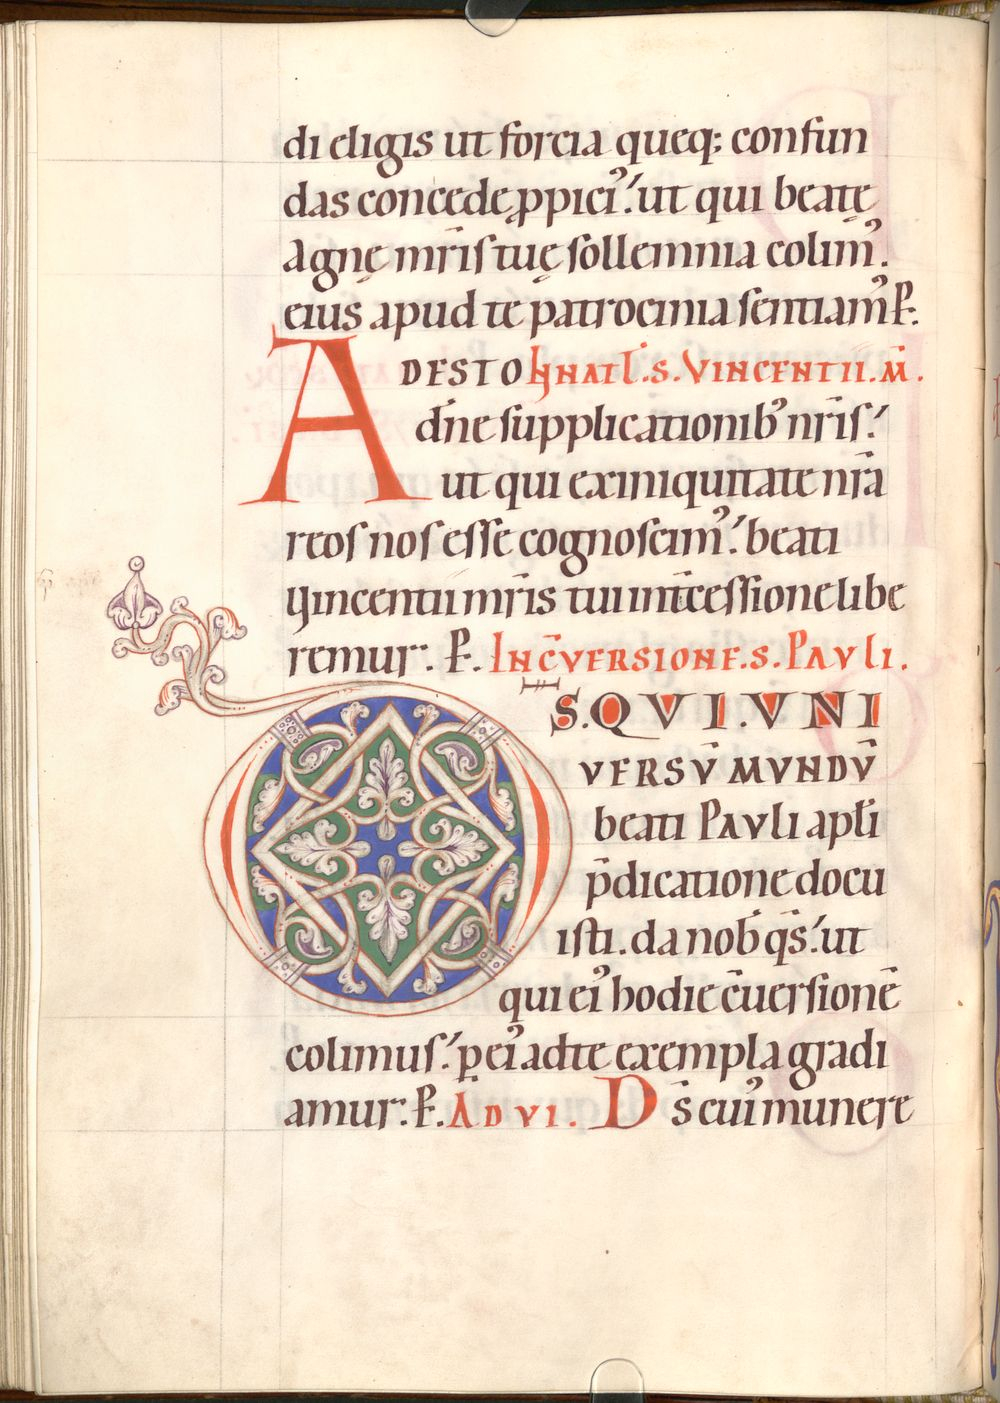 di eligis ut forcia queq; confun
das concede ꝓpici᾽ ut qui beatę
Agnę mr̄is tuę sollemnia colim᾽.
eius apud te patrocinia sentiam᾽ P̄.
ADESTO IN NAT̄L. S. VINCENTII. M̄.
dn̄e supplicationib᾽ nr̄is.
ut qui ex iniquitate nr̄a
reos nos esse cognoscim᾽. beati
Vincentii mr̄is tui int̄cessione libe
remur. P̄. IN C̄VERSIONE. S. PAVLI.
D̄S. QVI. VNI
VERSV̄ MVNDV̄
beati PAVLI apl̄i
p̄dicatione docu
isti. da nob̄ qs̄. ut
qui ei᾽ hodie c̄uersionē
colimus. p̲ ei᾽ ad te exempla gradi
amur. P̄. AD VI. Ds̄ cui᾽ munere